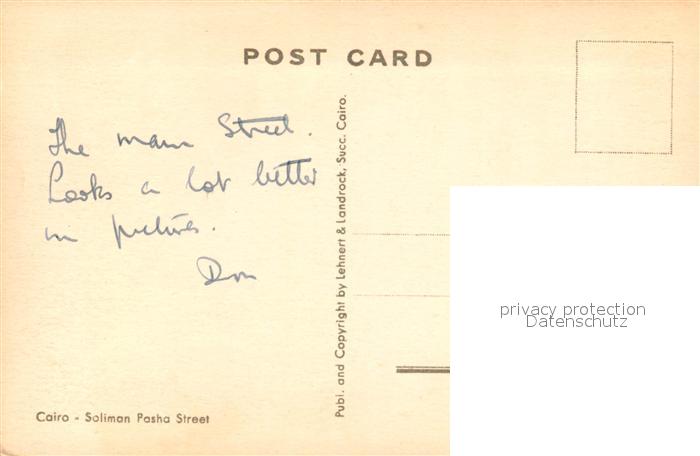 POST CARD
The main Street.
Looks a lot better
in pictures.
Don
Publ. and Copyright by Lehnert & Landrock, Succ. Cairo.
privacy protection
Datenschutz
Cairo - Soliman Pasha Street